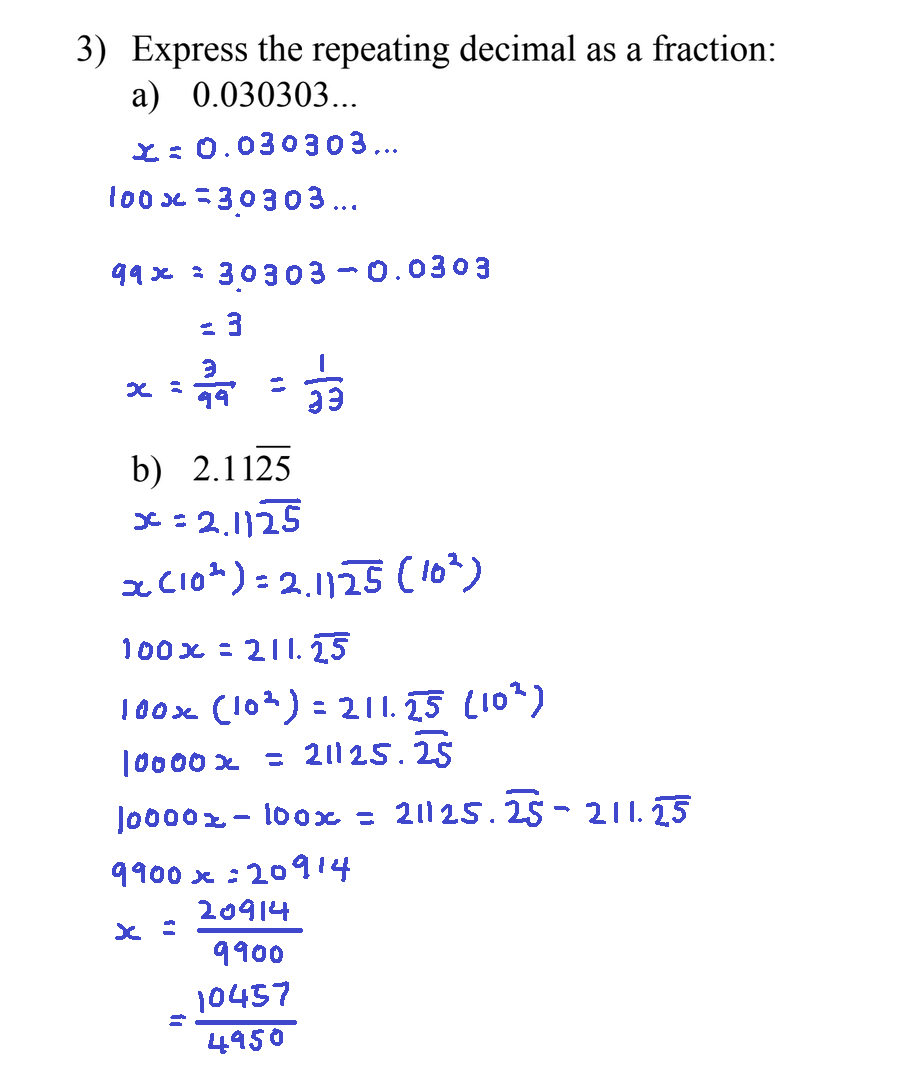 3) Express the repeating decimal as a fraction:
a) 0.030303...
x = 0.030303...
100x = 3.0303...
99x = 3.0303 - 0.0303
= 3
x = 3/99 = 1/33
b) 2.11\overline{25}
x = 2.11\overline{25}
x(10²) = 2.11\overline{25} (10²)
100x = 211.\overline{25}
100x (10²) = 211.\overline{25} (10²)
10000x = 21125.\overline{25}
10000x - 100x = 21125.\overline{25} - 211.\overline{25}
9900x = 20914
x = 20914/9900
= 10457/4950